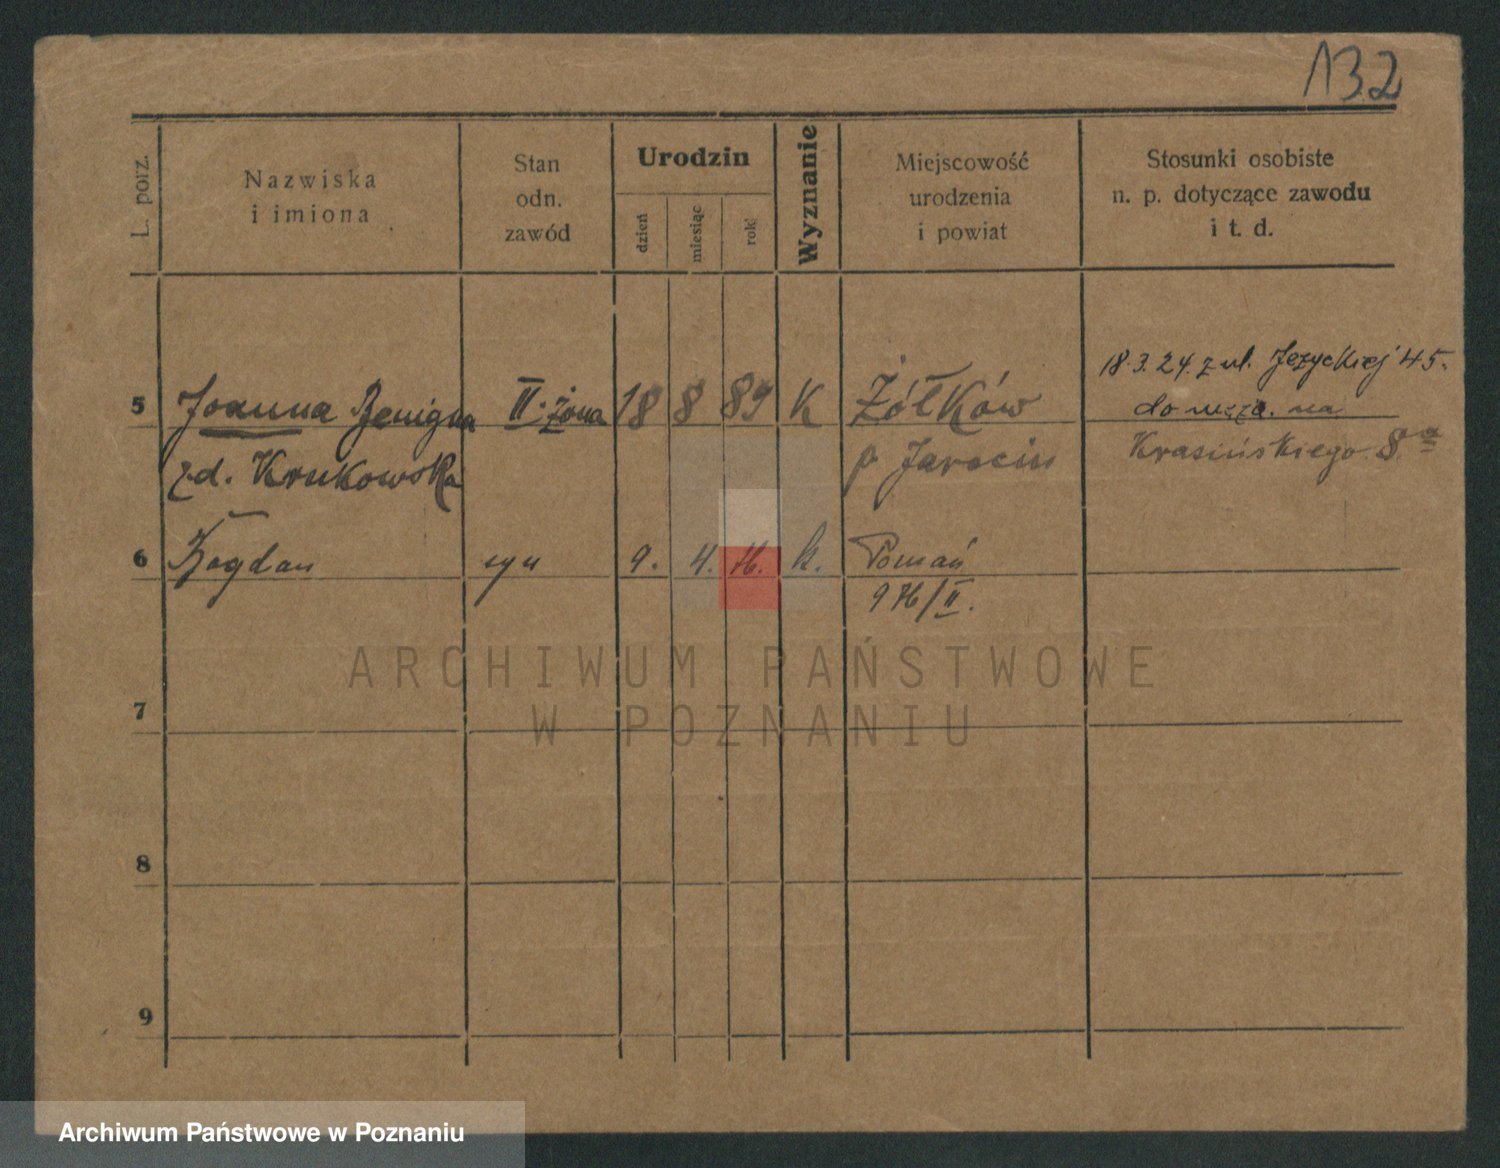 132
L. porz.
Nazwiska
i imiona
Stan
odn.
zawód
Urodzin
dzień
miesiąc
rok
Wyznanie
Miejscowość
urodzenia
i powiat
Stosunki osobiste
n. p. dotyczące zawodu
i t. d.
18.3.24. z ul. Jeżyckiej 45.
5 Joanna Benigna II. żona 18 8 89 K Żółków do męża. na
zd. Krukowska p. Jarocin Krasińskiego 8.
6 Bogdan syn 9. 4. k. Poznań
/II.
7
8
9
ARCHIWUM PAŃSTWOWE
W POZNANIU
Archiwum Państwowe w Poznaniu